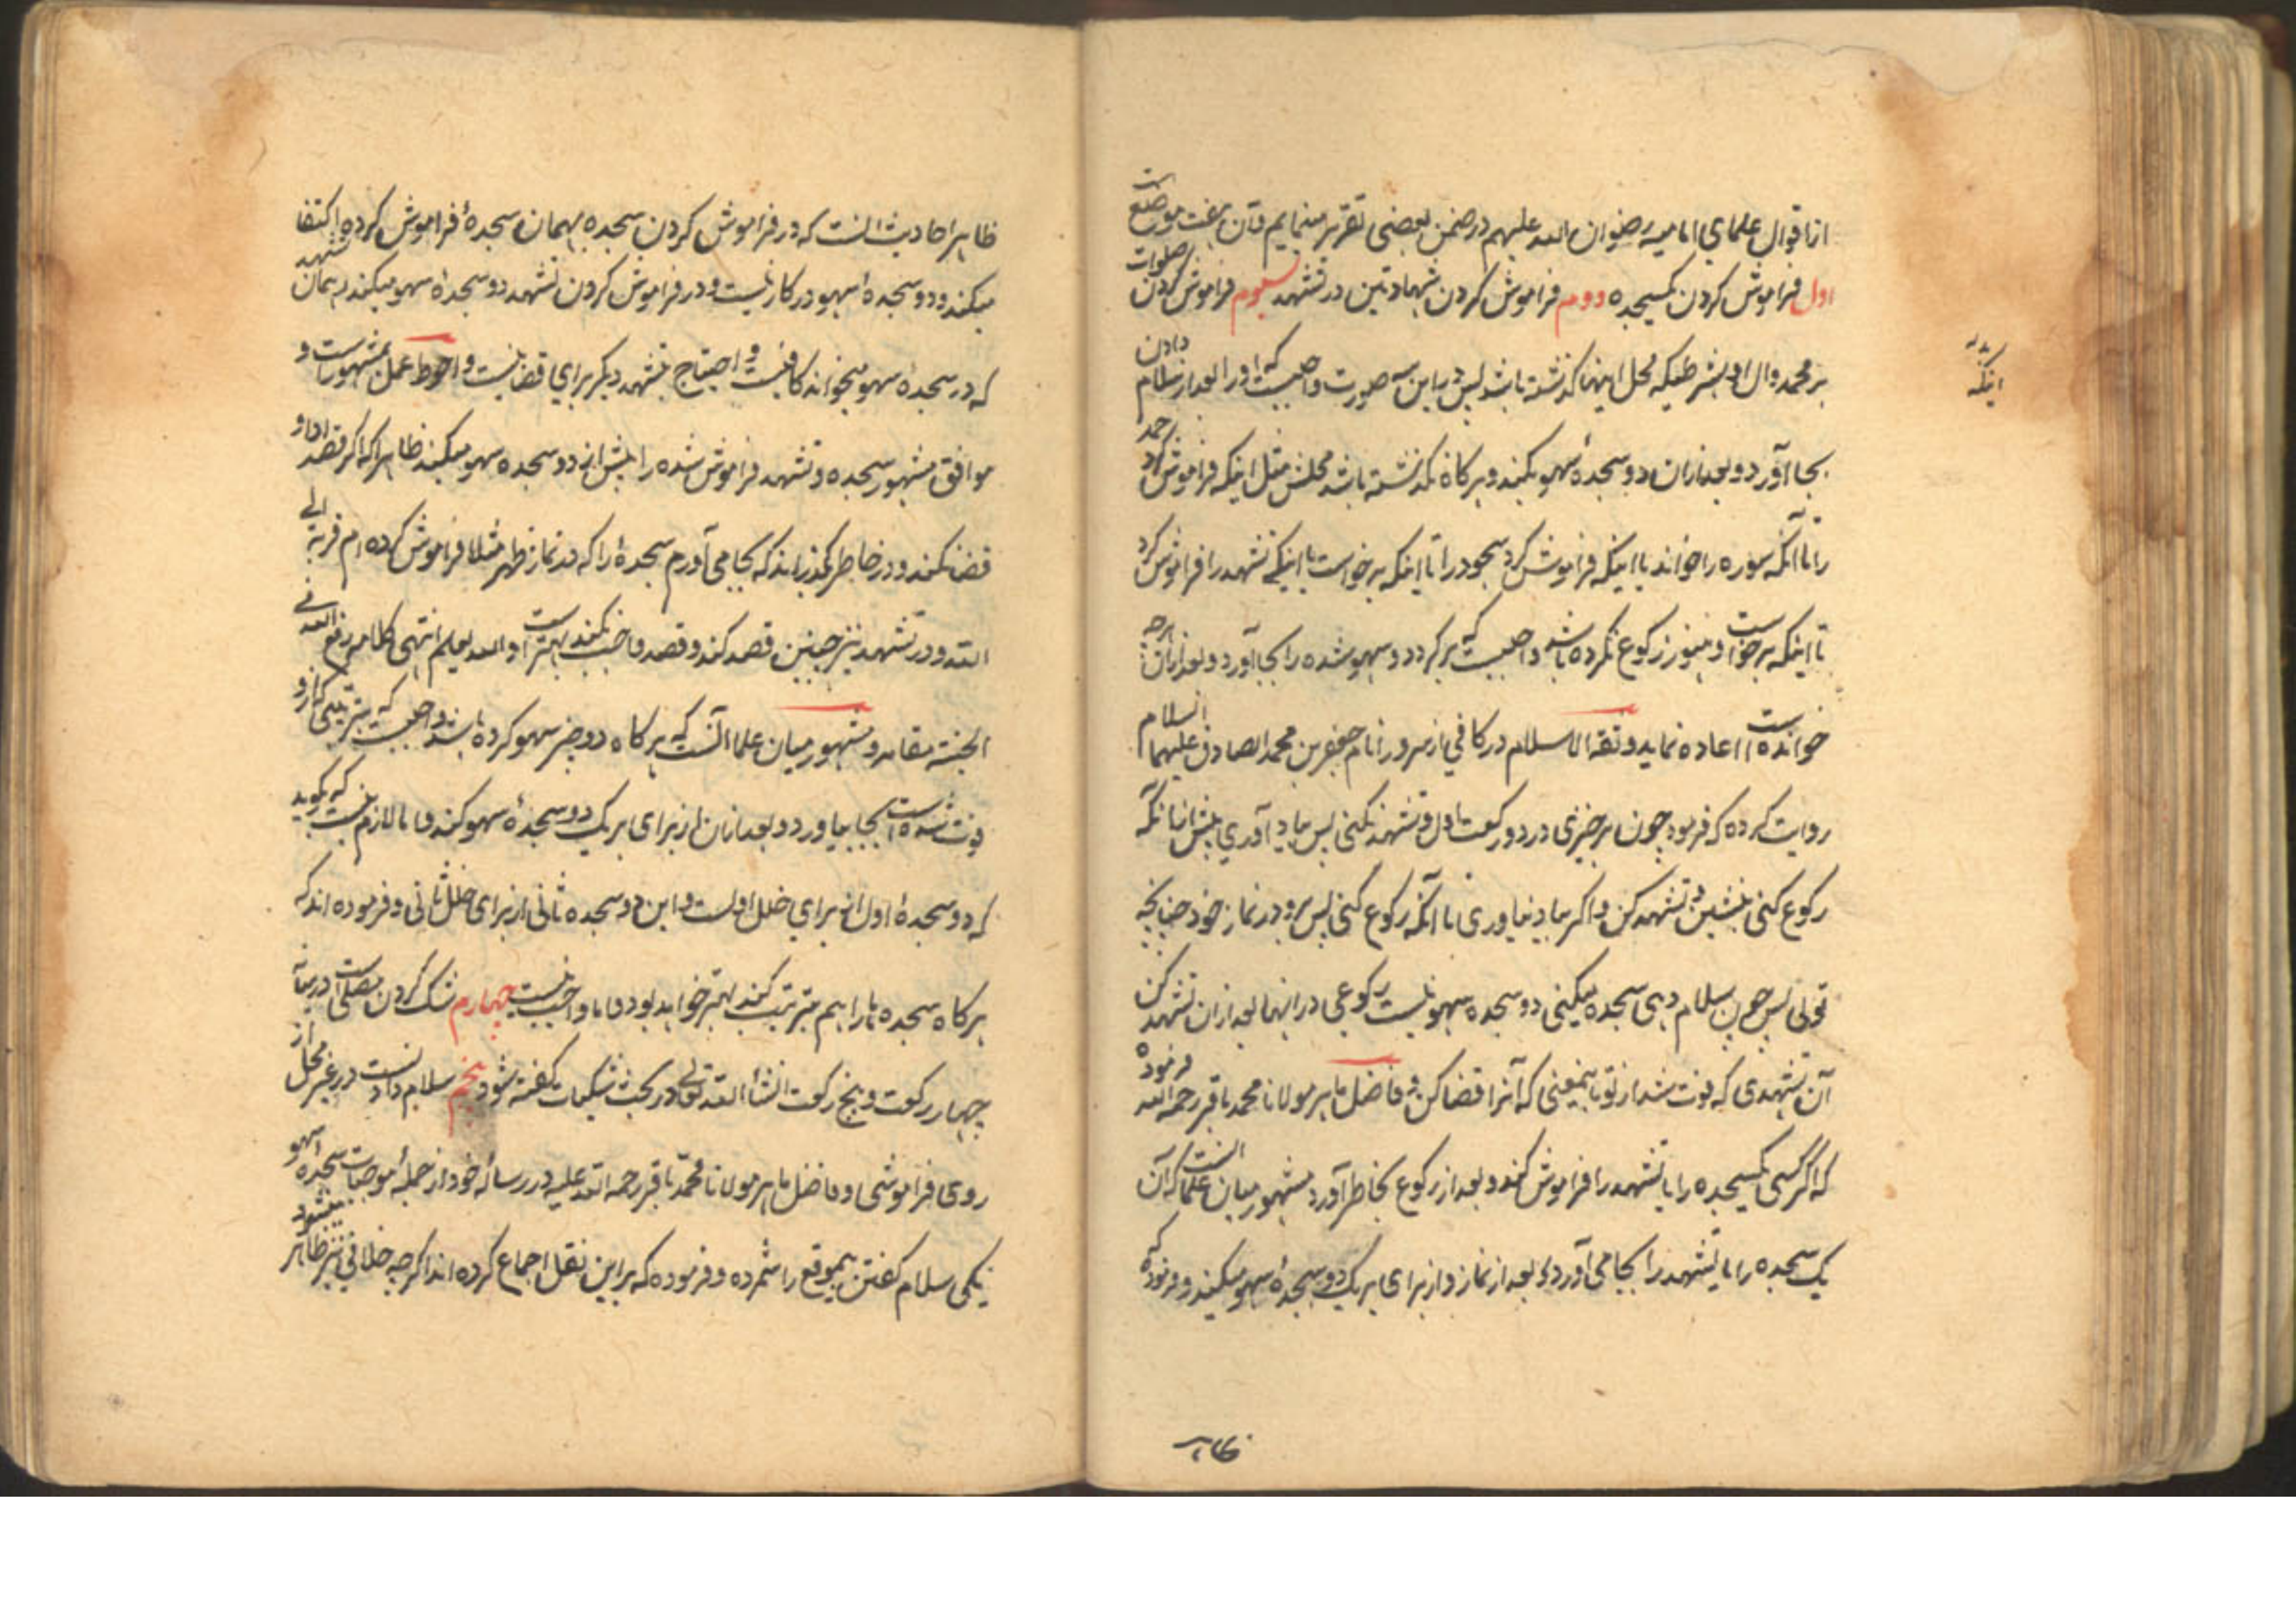 از اقوال علمای امامیه رضوان الله علیهم در ضمن بعضی تقریر مینمایم و آن هفت موضعست
اول فراموش کردن یکسجده دووم فراموش کردن شهادتین در تشهد سیوم فراموش کردن صلوات
بر محمد و آل او بشرطیکه محل اینها گذشته باشد پس درین سه صورت واجبست که او را بعد از سلام دادن
بجا آورد و بعد از آن دو سجدهٔ سهو بکند و هرگاه نگذشته باشد محلش مثل اینکه فراموش کرد حمد
را تا آنکه سوره را خواند یا اینکه فراموش کرد سجود را تا اینکه برخواست یا اینکه تشهد را فراموش کرد
تا اینکه برخواست و هنوز رکوع نکرده باشد واجبست که برگردد و سهو شده را بجا آورد و بعد از آن هرچه
خوانده است اعاده نماید و ثقة الاسلام در کافی از سرور انام جعفر بن محمد الصادق علیهما السلام
روایت کرده که فرمود چون برخیزی در دو رکعت اول و تشهد نکنی پس بیاد آوری پیش از آنکه
رکوع کنی بنشین و تشهد کن و اگر بیاد نیاوری تا آنکه رکوع کنی پس برو در نماز خود چنانچه
توئی پس چون سلام دهی سجده میکنی دو سجده سهو نیست رکوعی در اینها بعد از آن تشهد کن
آن تشهدی که فوت شد از تو باینمعنی که آنرا قضا کن و فاضل ماهر مولانا محمد باقر رحمه الله فرموده
که اگر کسی یکسجده را یا تشهد را فراموش کند و بعد از رکوع بخاطر آورد مشهور میان علما آنست که آن
یک سجده را یا تشهد را بجا می آورد بعد از نماز و از برای هر یک دو سجدهٔ سهو میکند و فرموده که
اینکه
ظاهر احادیث آنست که در فراموش کردن سجده بهمان سجدهٔ فراموش کرده اکتفا
میکند و دو سجدهٔ سهو در کار نیست و در فراموش کردن تشهد دو سجدهٔ سهو میکند و همان تشهد
که در سجدهٔ سهو میخواند کافیست و احتیاج بتشهد دیگر برای قضا نیست و احوط عمل بمشهورست و
موافق مشهور سجده و تشهد فراموش شده را پیش از دو سجده سهو میکنند ظاهرا که اگر قصد ادا و
قضا نکند و در خاطر بگذراند که بجا می آورم سجدهٔ را که در نماز ظهر مثلا فراموش کرده ام قربة الی
الله و در تشهد نیز چنین قصد کند و قصد واجب نکند بهتر است و الله یعلم انتهی کلامه رفع الله فی
الجنة مقامه و مشهور میان علما آنست که هرگاه دو چیز سهو کرده باشد واجبست که بترتیبی که از و
فوت شده است بجا بیاورد و بعد از آن از برای هر یک دو سجدهٔ سهو کند و اما لازم نیست که بگوید
که دو سجدهٔ اول از برای خلل اولست و این دو سجده ثانی از برای خلل ثانی و فرموده اند که
هرگاه سجده ها را هم بترتیب کند بهتر خواهد بود و اما واجب نیست چهارم شک کردن مصلی است در میانه
چهار رکعت و پنج رکعت انشأ الله تعالی در بحث شکیات گفته شود پنجم سلام دادنست در غیر محل از
روی فراموشی و فاضل ماهر مولانا محمد باقر رحمه الله علیه در رسالهٔ خود از جملهٔ موجبات سجدهٔ سهو
یکی سلام گفتن بیموقع را شمرده و فرموده که بر این نقل اجماع کرده اند اگرچه خلافی نیز ظاهر میشود